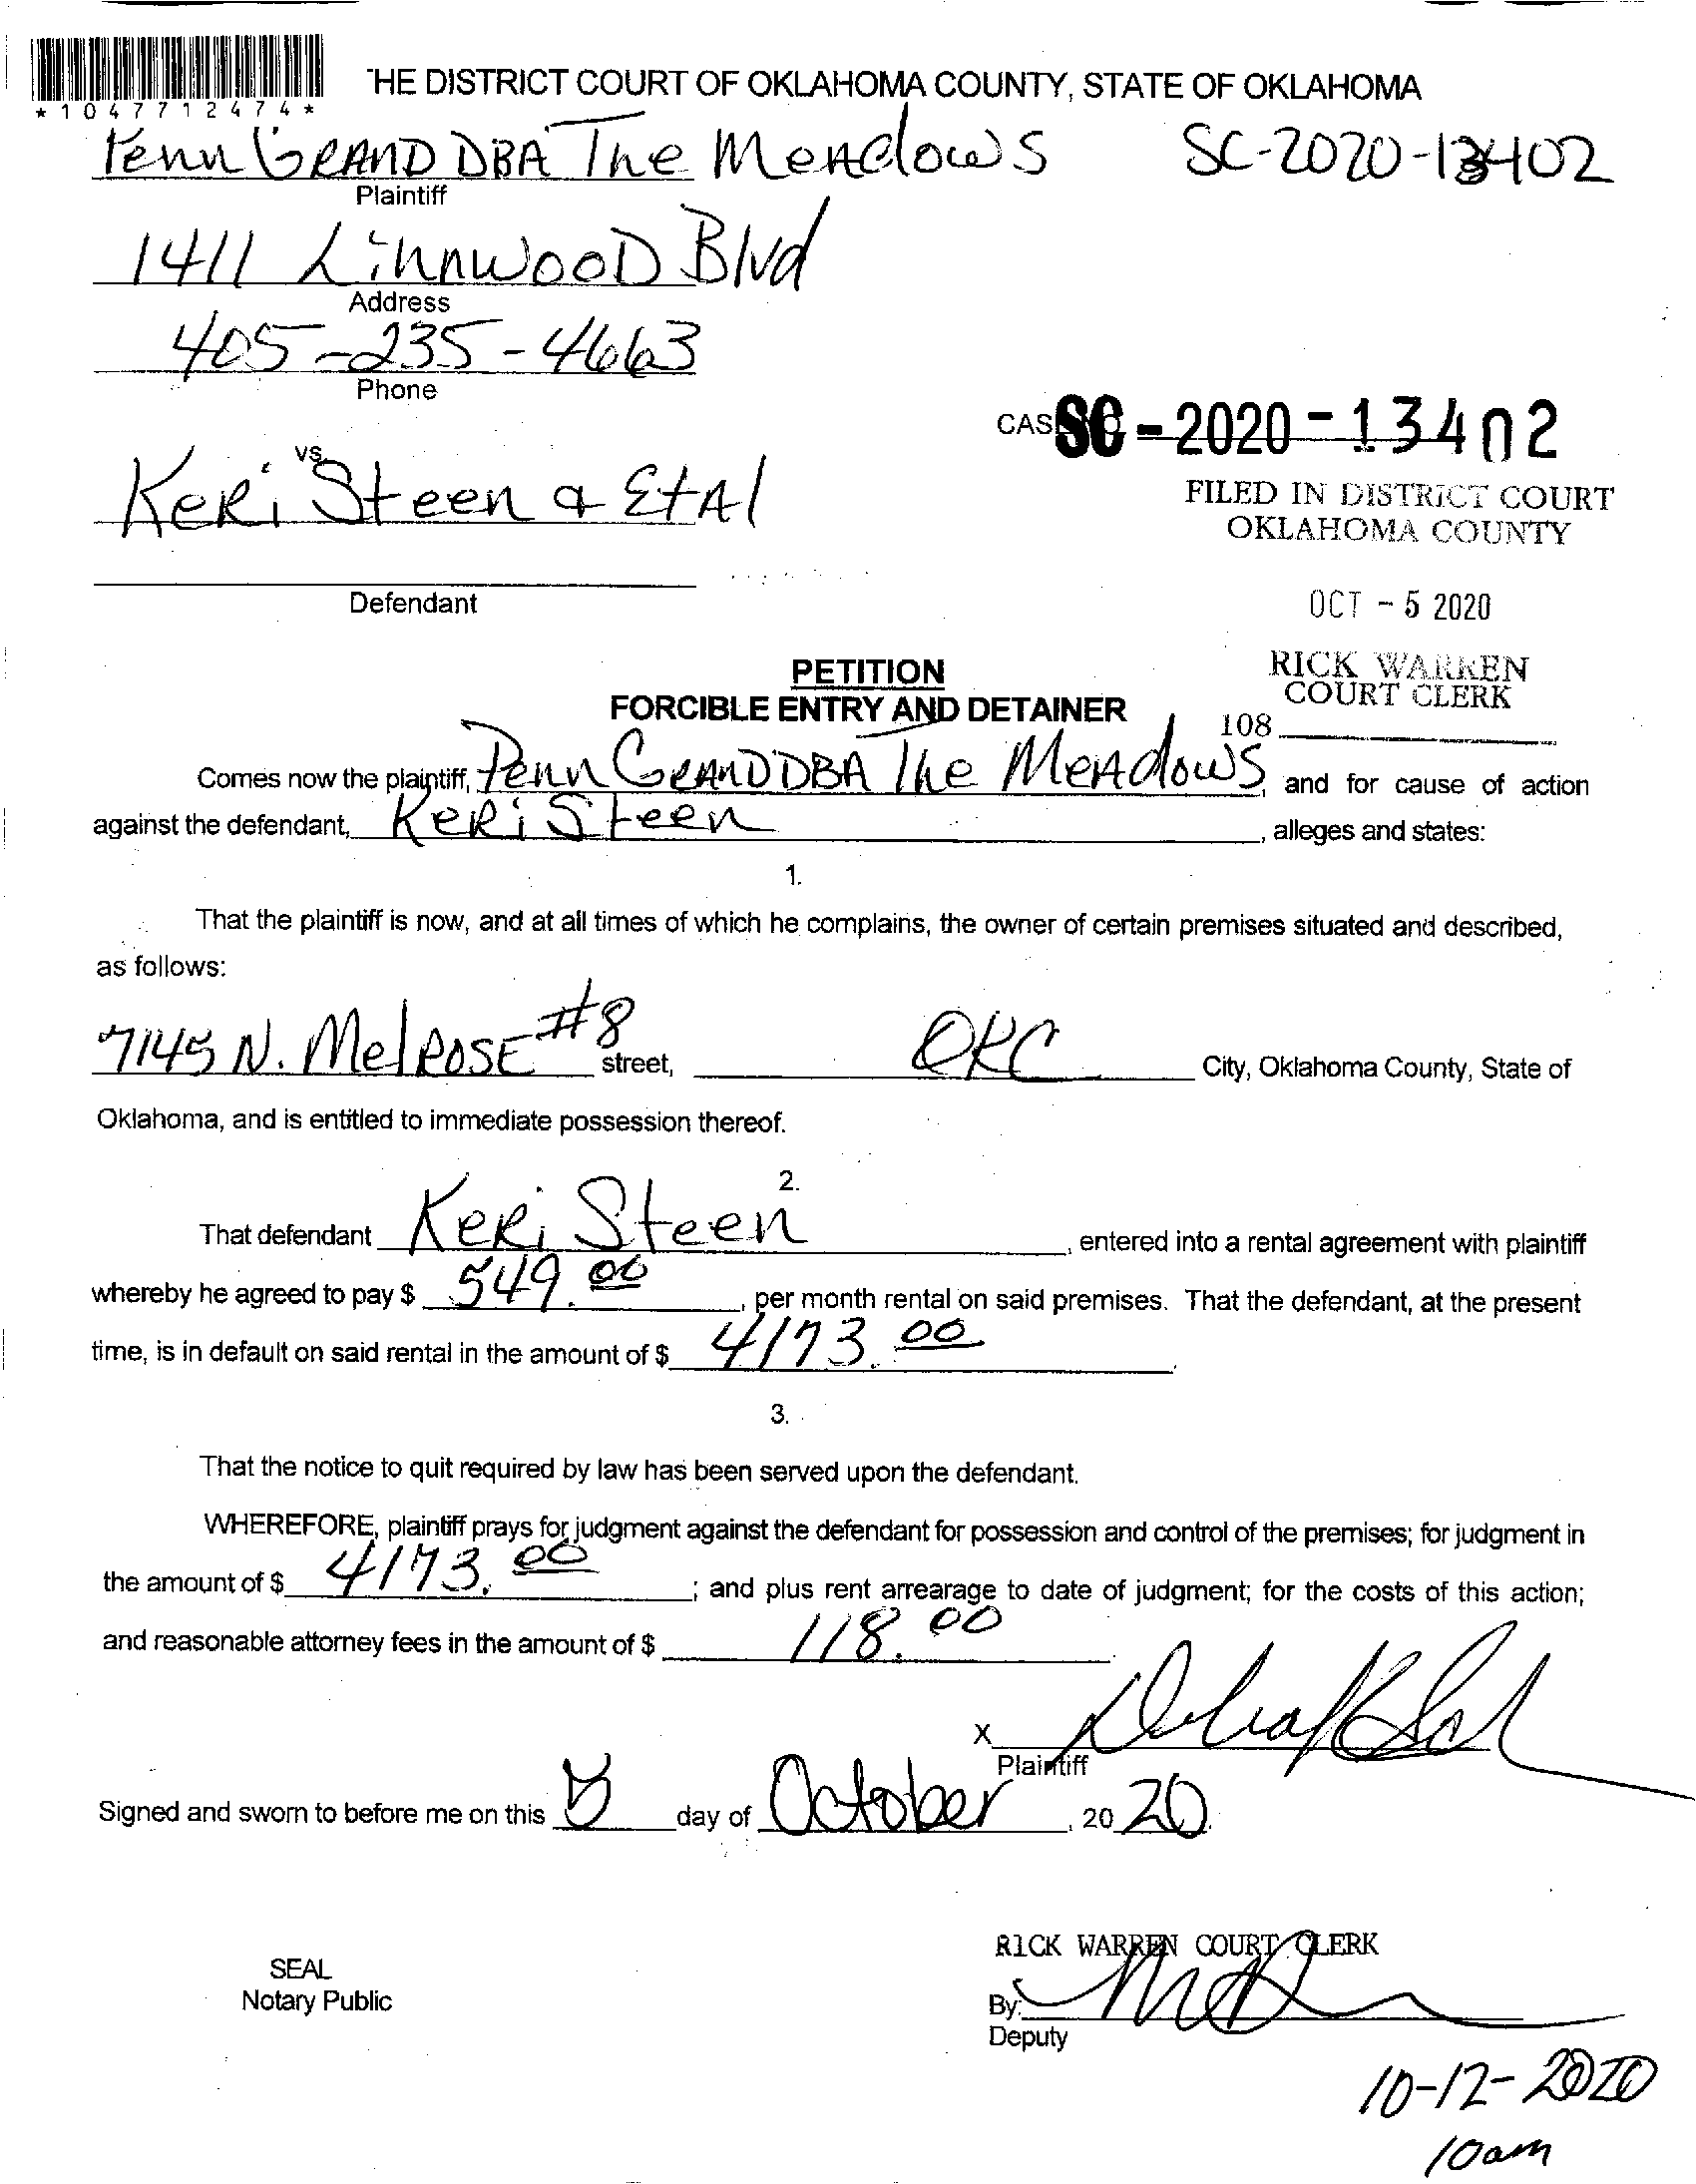 THE DISTRICT COURT OF OKLAHOMA COUNTY, STATE OF OKLAHOMA
*1047712474*
Penn GRAND DBA The MeAdows SC-2020-13402
Plaintiff
1411 LinnwooD Blvd
Address
405-235-4663
Phone
CAS SC-2020-13402
vs.
KeRi Steen & EtAl
FILED IN DISTRICT COURT
OKLAHOMA COUNTY
Defendant
OCT - 5 2020
PETITION
FORCIBLE ENTRY AND DETAINER
RICK WARREN
COURT CLERK
108
Comes now the plaintiff, Penn GRAND DBA The MeAdows, and for cause of action
against the defendant, KeRi Steen, alleges and states:
1.
That the plaintiff is now, and at all times of which he complains, the owner of certain premises situated and described,
as follows:
7145 N. MelROSE #8 street, OKC City, Oklahoma County, State of
Oklahoma, and is entitled to immediate possession thereof.
2.
That defendant KeRi Steen, entered into a rental agreement with plaintiff
whereby he agreed to pay $ 549.00, per month rental on said premises. That the defendant, at the present
time, is in default on said rental in the amount of $ 4173.00.
3.
That the notice to quit required by law has been served upon the defendant.
WHEREFORE, plaintiff prays for judgment against the defendant for possession and control of the premises; for judgment in
the amount of $ 4173.00; and plus rent arrearage to date of judgment; for the costs of this action;
and reasonable attorney fees in the amount of $ 118.00
X
Plaintiff
Signed and sworn to before me on this 5 day of October, 2020.
RICK WARREN COURT CLERK
SEAL
Notary Public
By:
Deputy
10-12-2020
10am